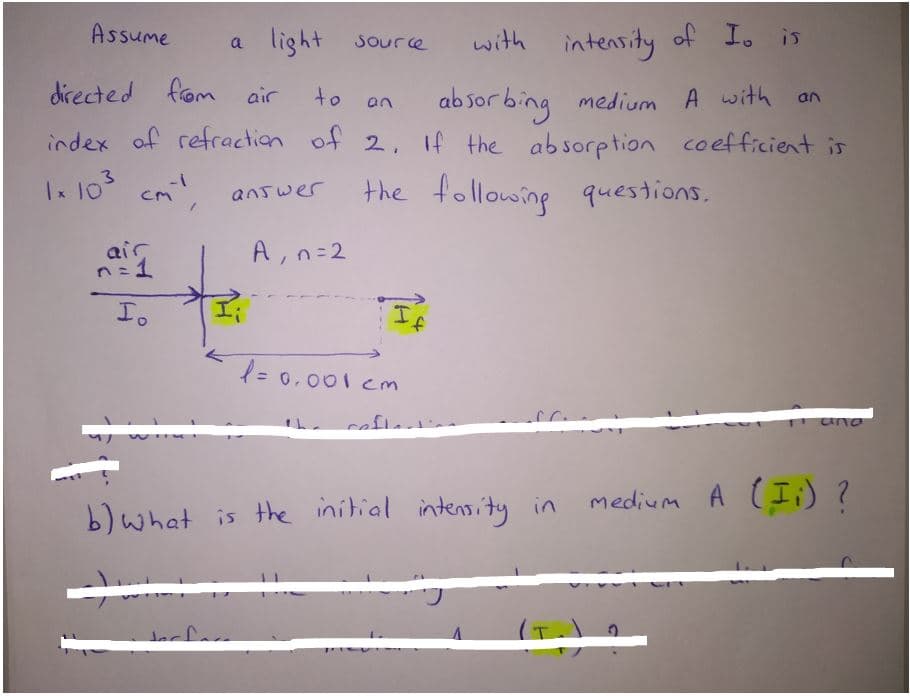 Assume a light source with intensity of I₀ is
directed from air to an absorbing medium A with an
index of refraction of 2. If the absorption coefficient is
1x10³ cm⁻¹, answer the following questions.
air
n=1
A, n=2
I₀
Iᵢ
I_f
l=0,001 cm
b) what is the initial intensity in medium A (Iᵢ) ?